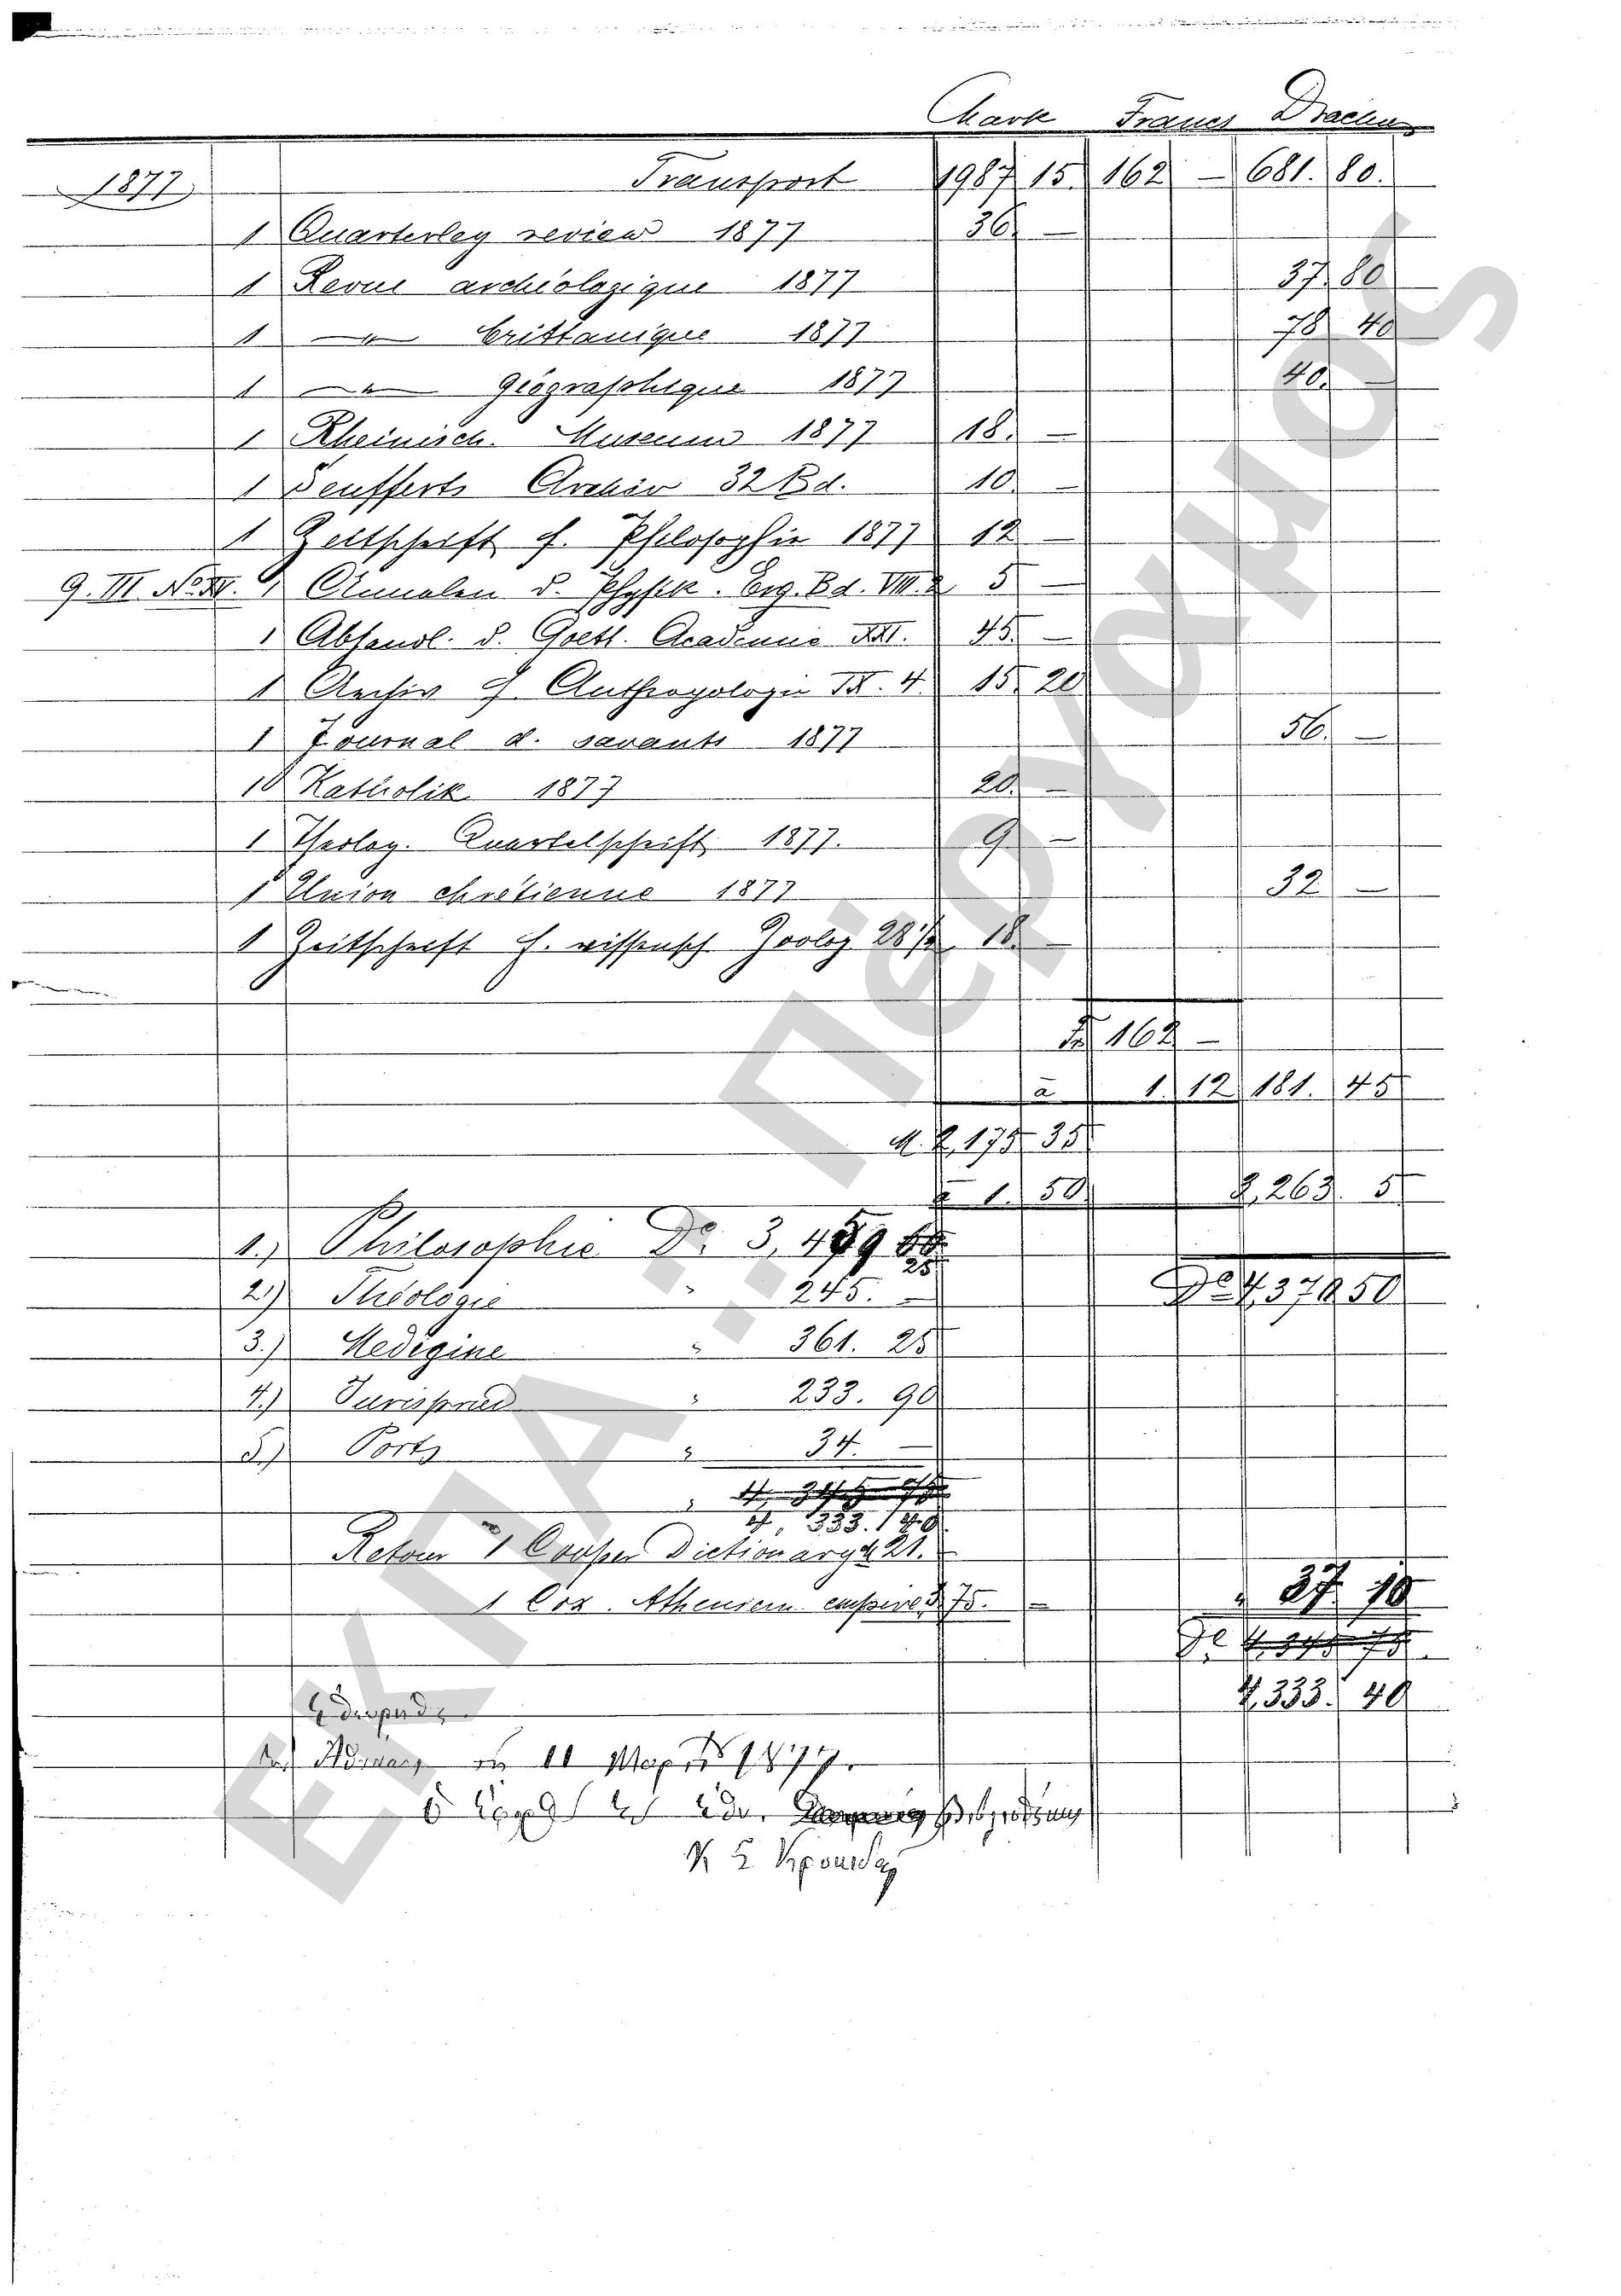 Mark Francs Drachm
1877 Transport 1987 15. 162 — 681. 80.
1 Quarterley review 1877 36. —
1 Revue archéologique 1877 37. 80
1 —"— brittanique 1877 78 40
1 —"— géographique 1877 40. —
1 Rheinisch. Museum 1877 18. —
1 Seufferts Archiv 32 Bd. 10. —
1 Zeitschrift f. Philosophie 1877 12 —
9. III 1 Annalen d. Physik. Erg. Bd. VIII. 2 5 —
1 Abhandl. d. Goett. Academie XXI. 45. —
1 Archiv f. Anthropologie IX. 4. 15. 20
1 Journal d. savants 1877 56. —
1 Katholik 1877 20. —
1 Theolog. Quartalschrift 1877. 9 —
1 Union chrétienne 1877 32 —
1 Zeitschrift f. wissensch. Zoolog. 28 18. —
162 —
à 1. 12 181. 45
M. 2,175 35
1. 50 3,263. 5
1.) Philosophie Dr. 3,4
25
2.) Théologie " 245. — Dr 4,37 50
3.) Medezine " 361. 25
4.) Jurisprud " 233. 90
5.) Porto " 34. —
4, 333. 40.
Retour 1 Cooper Dictionary 21. —
1 Cox. Athenien empire 75. — 37 10
Dr
4,333. 40
11 1877.
ΕΚΠΑ ... Πέργαμος